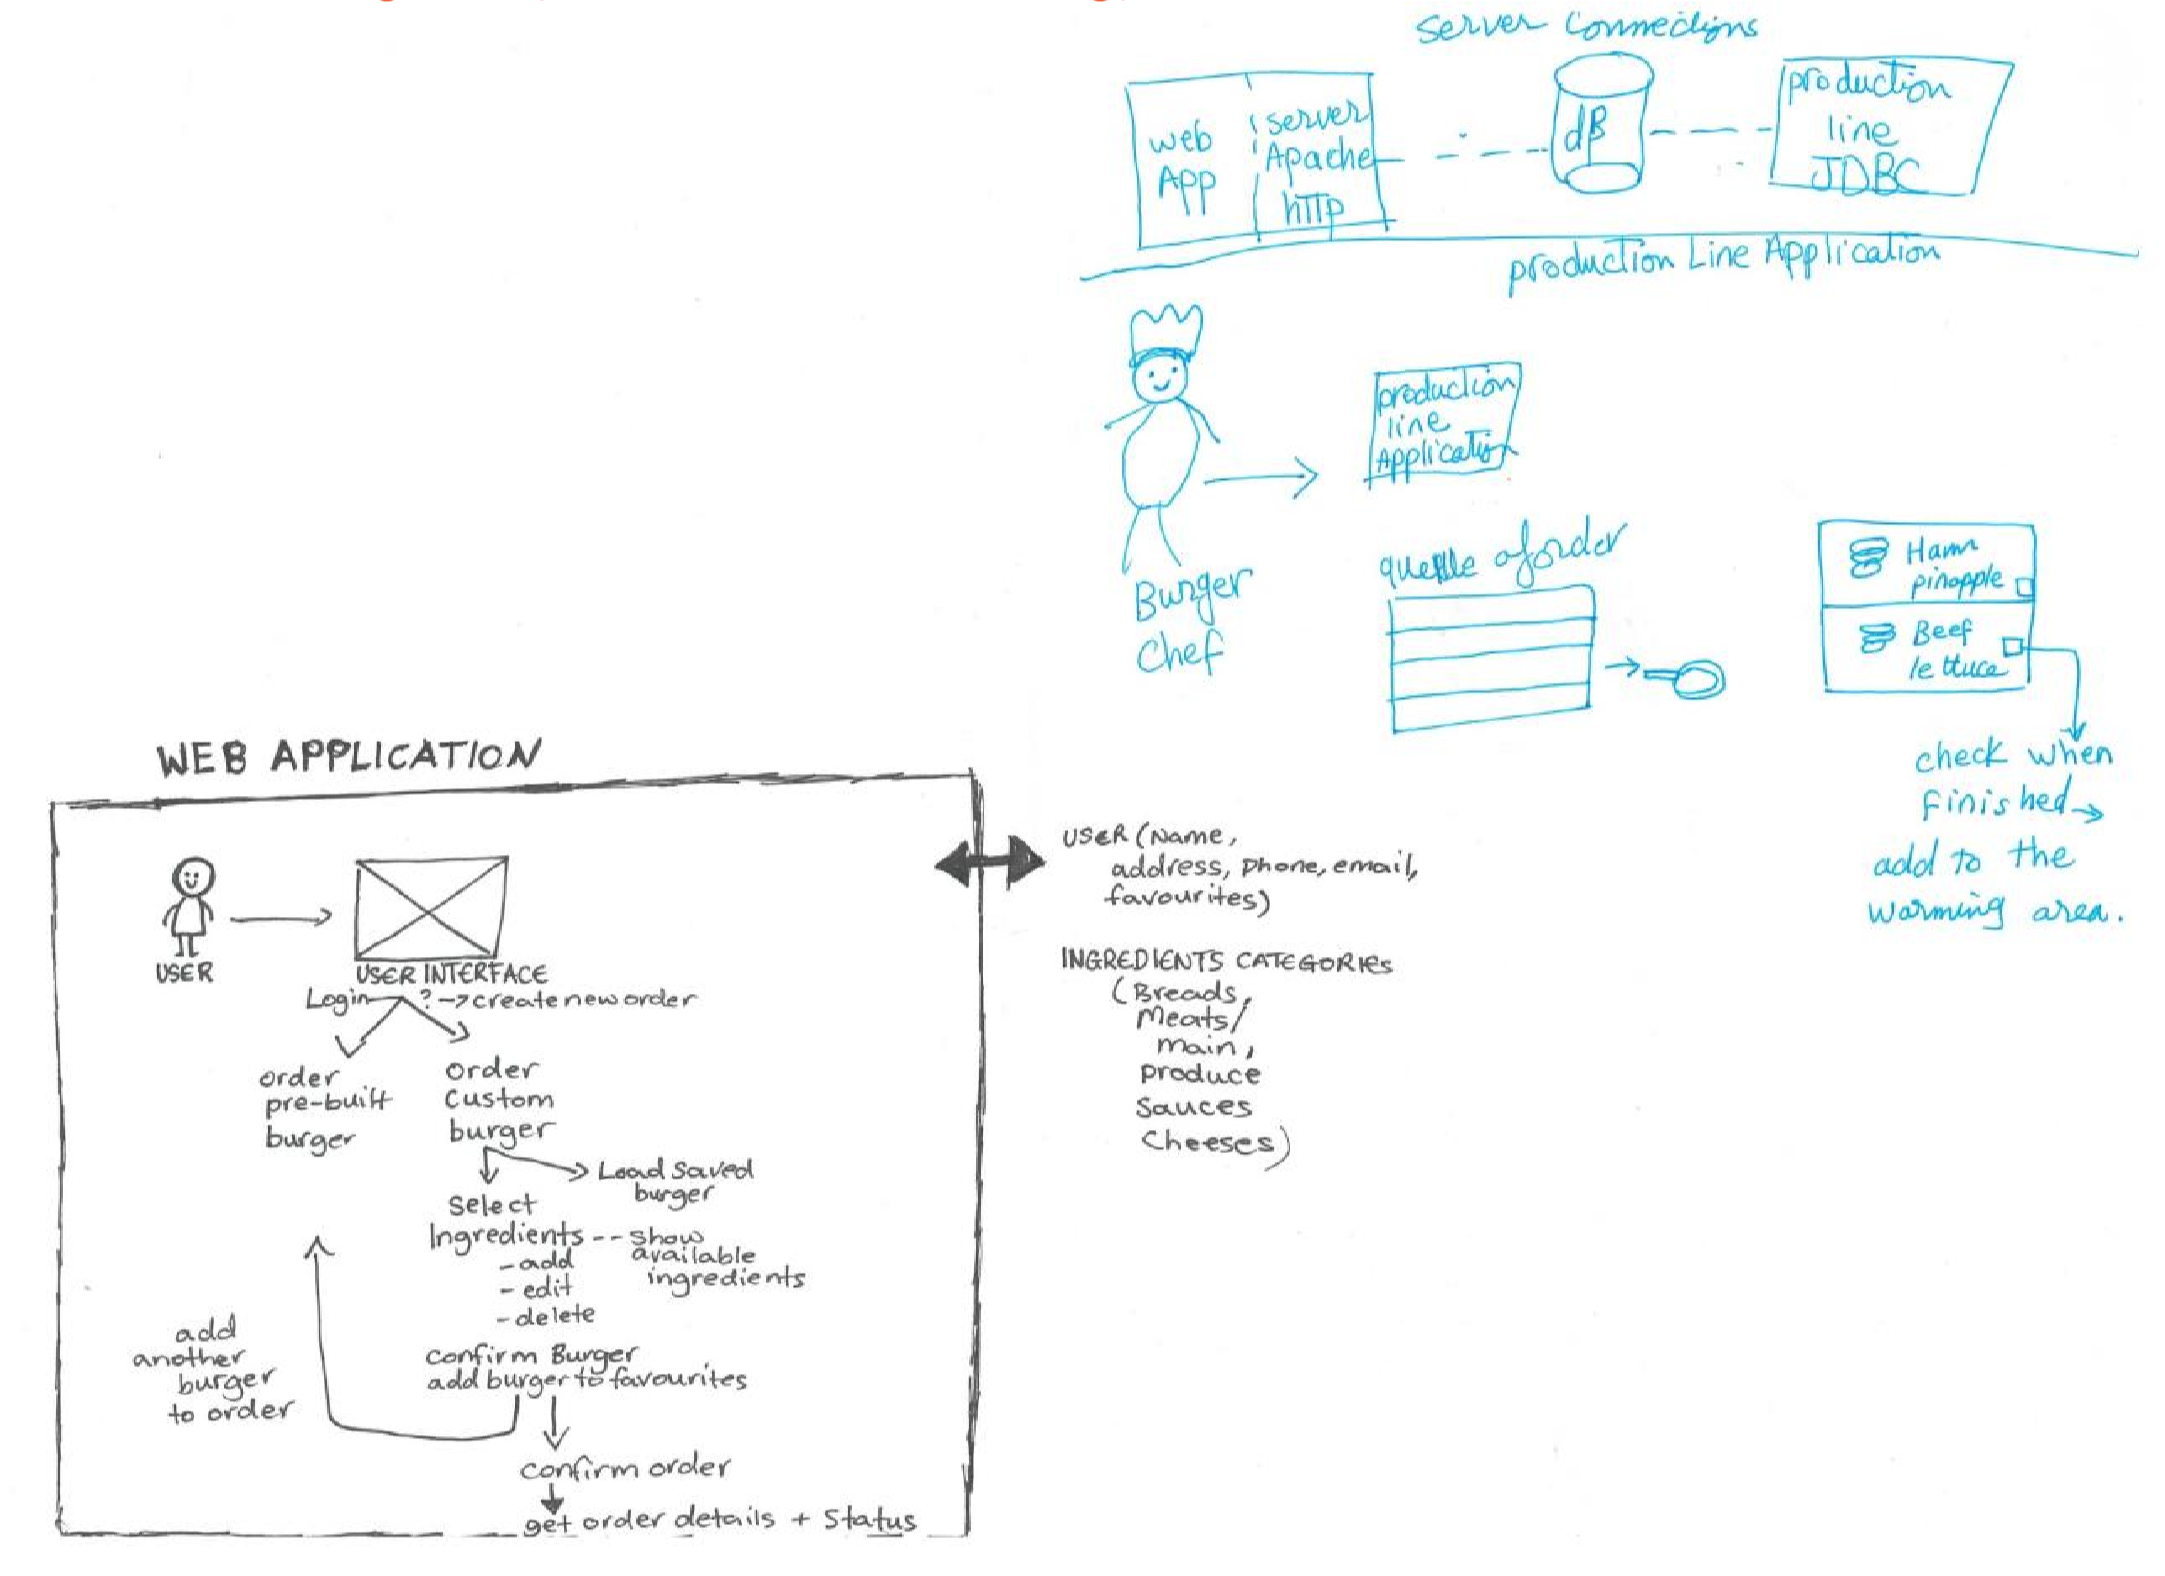 server connections
web
App
server
Apache
http
dB
production
line
JDBC
production Line Application
production
line
Application
Burger
Chef
queue of order
Ham
pinapple
Beef
lettuce
check when
finished →
add to the
warming area.
WEB APPLICATION
USER
USER INTERFACE
Login ? -> create new order
order
pre-built
burger
order
custom
burger
Load saved
burger
select
Ingredients -- show
available
ingredients
- add
- edit
- delete
confirm Burger
add burger to favourites
add
another
burger
to order
confirm order
get order details + status
USER (Name,
address, phone, email,
favourites)
INGREDIENTS CATEGORIES
(Breads,
Meats/
main,
produce
sauces
cheeses)